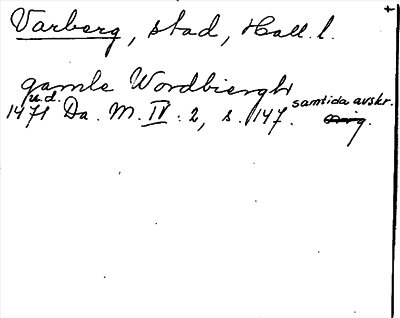 Varberg, stad, Hall. l.
gamle Wordbiergh
u.d. samtida avskr.
1471 Da. M. IV: 2, s. 147. orig.